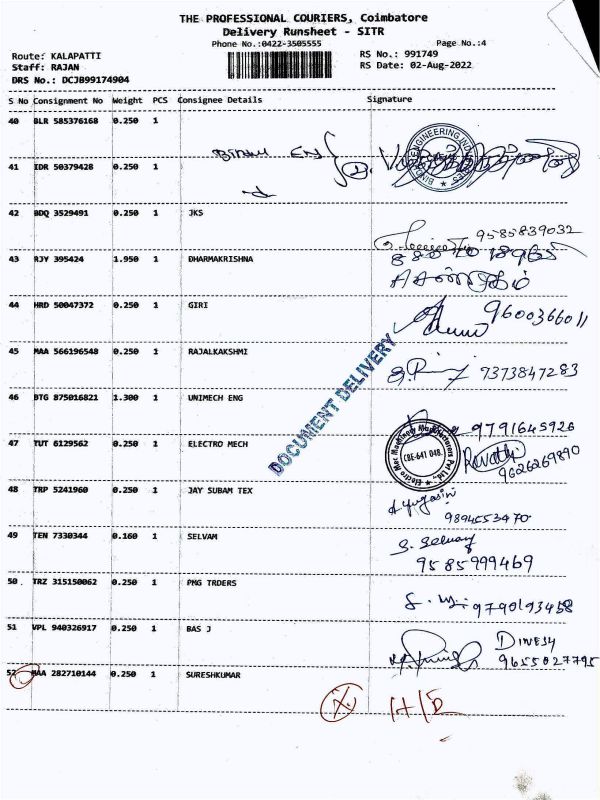 THE PROFESSIONAL COURIERS, Coimbatore
Delivery Runsheet - SITR
Phone No.:0422-3505555 Page No.:4
Route: KALAPATTI RS No.: 991749
Staff: RAJAN RS Date: 02-Aug-2022
DRS No.: DCJB99174904
S No Consignment No Weight PCS Consignee Details Signature
40 BLR 585376168 0.250 1
41 IDR 50379428 0.250 1
42 BDQ 3529491 0.250 1 JKS
9585839032
43 RJY 395424 1.950 1 DHARMAKRISHNA
44 HRD 50047372 0.250 1 GIRI
9600366011
45 MAA 566196548 0.250 1 RAJALKAKSHMI
7373847283
DOCUMENT DELIVERY
46 BTG 875016821 1.300 1 UNIMECH ENG
9791645926
47 TUT 6129562 0.250 1 ELECTRO MECH
CBE-641 048.
Revathi
9626269890
48 TRP 5241960 0.250 1 JAY SUBAM TEX
9894553470
49 TEN 7330344 0.160 1 SELVAM
S. Selvam
9585999469
50. TRZ 315150062 0.250 1 PMG TRDERS
9790193458
51 VPL 940326917 0.250 1 BAS J
DINESH
9655027795
52 MAA 282710144 0.250 1 SURESHKUMAR